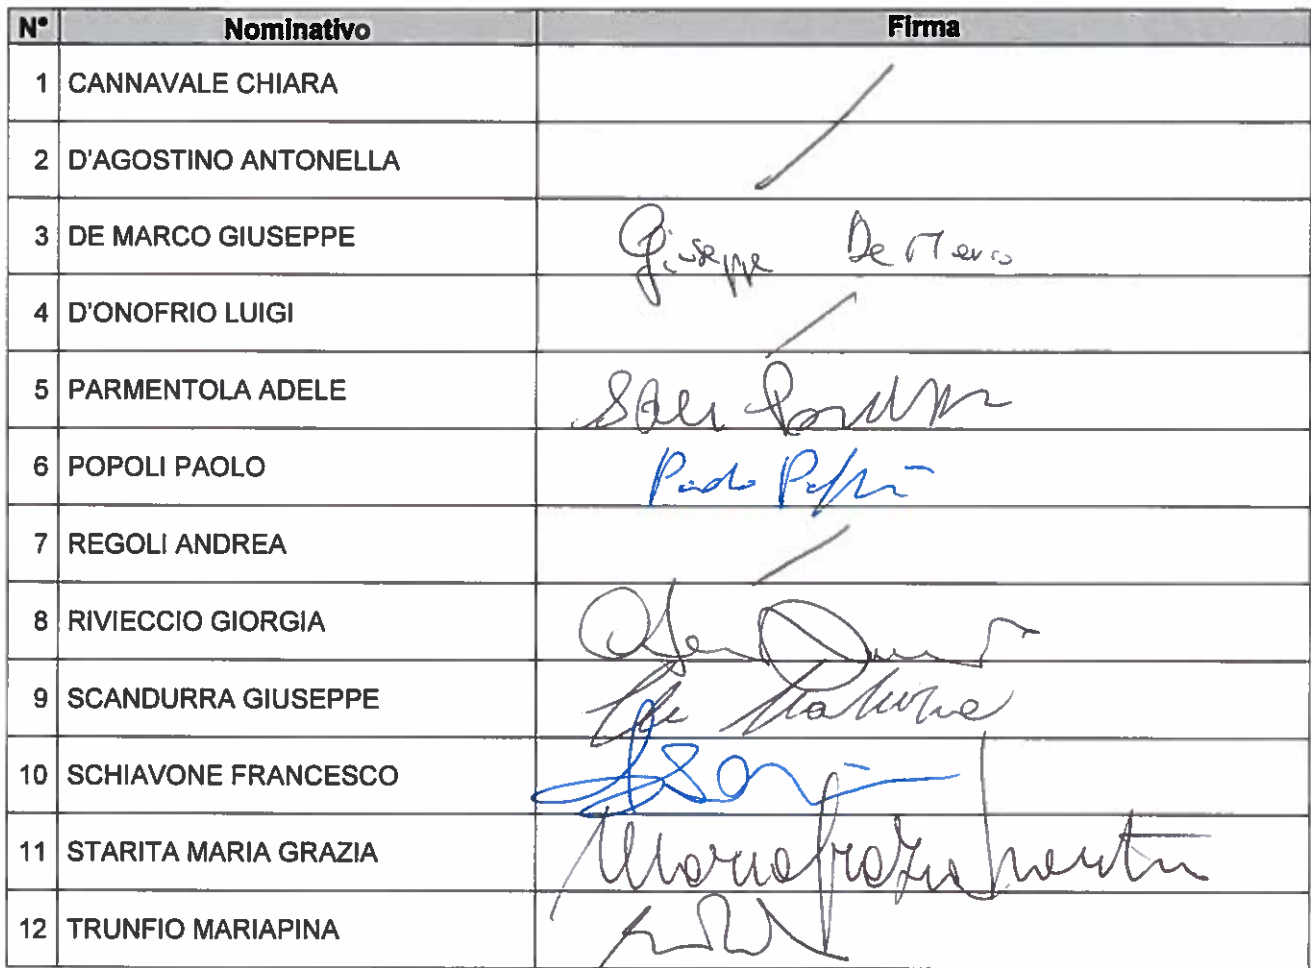 N° Nominativo Firma
1 CANNAVALE CHIARA
2 D'AGOSTINO ANTONELLA
3 DE MARCO GIUSEPPE Giuseppe De Marco
4 D'ONOFRIO LUIGI
5 PARMENTOLA ADELE
6 POPOLI PAOLO Paolo Popoli
7 REGOLI ANDREA
8 RIVIECCIO GIORGIA
9 SCANDURRA GIUSEPPE
10 SCHIAVONE FRANCESCO
11 STARITA MARIA GRAZIA Maria Grazia Starita
12 TRUNFIO MARIAPINA